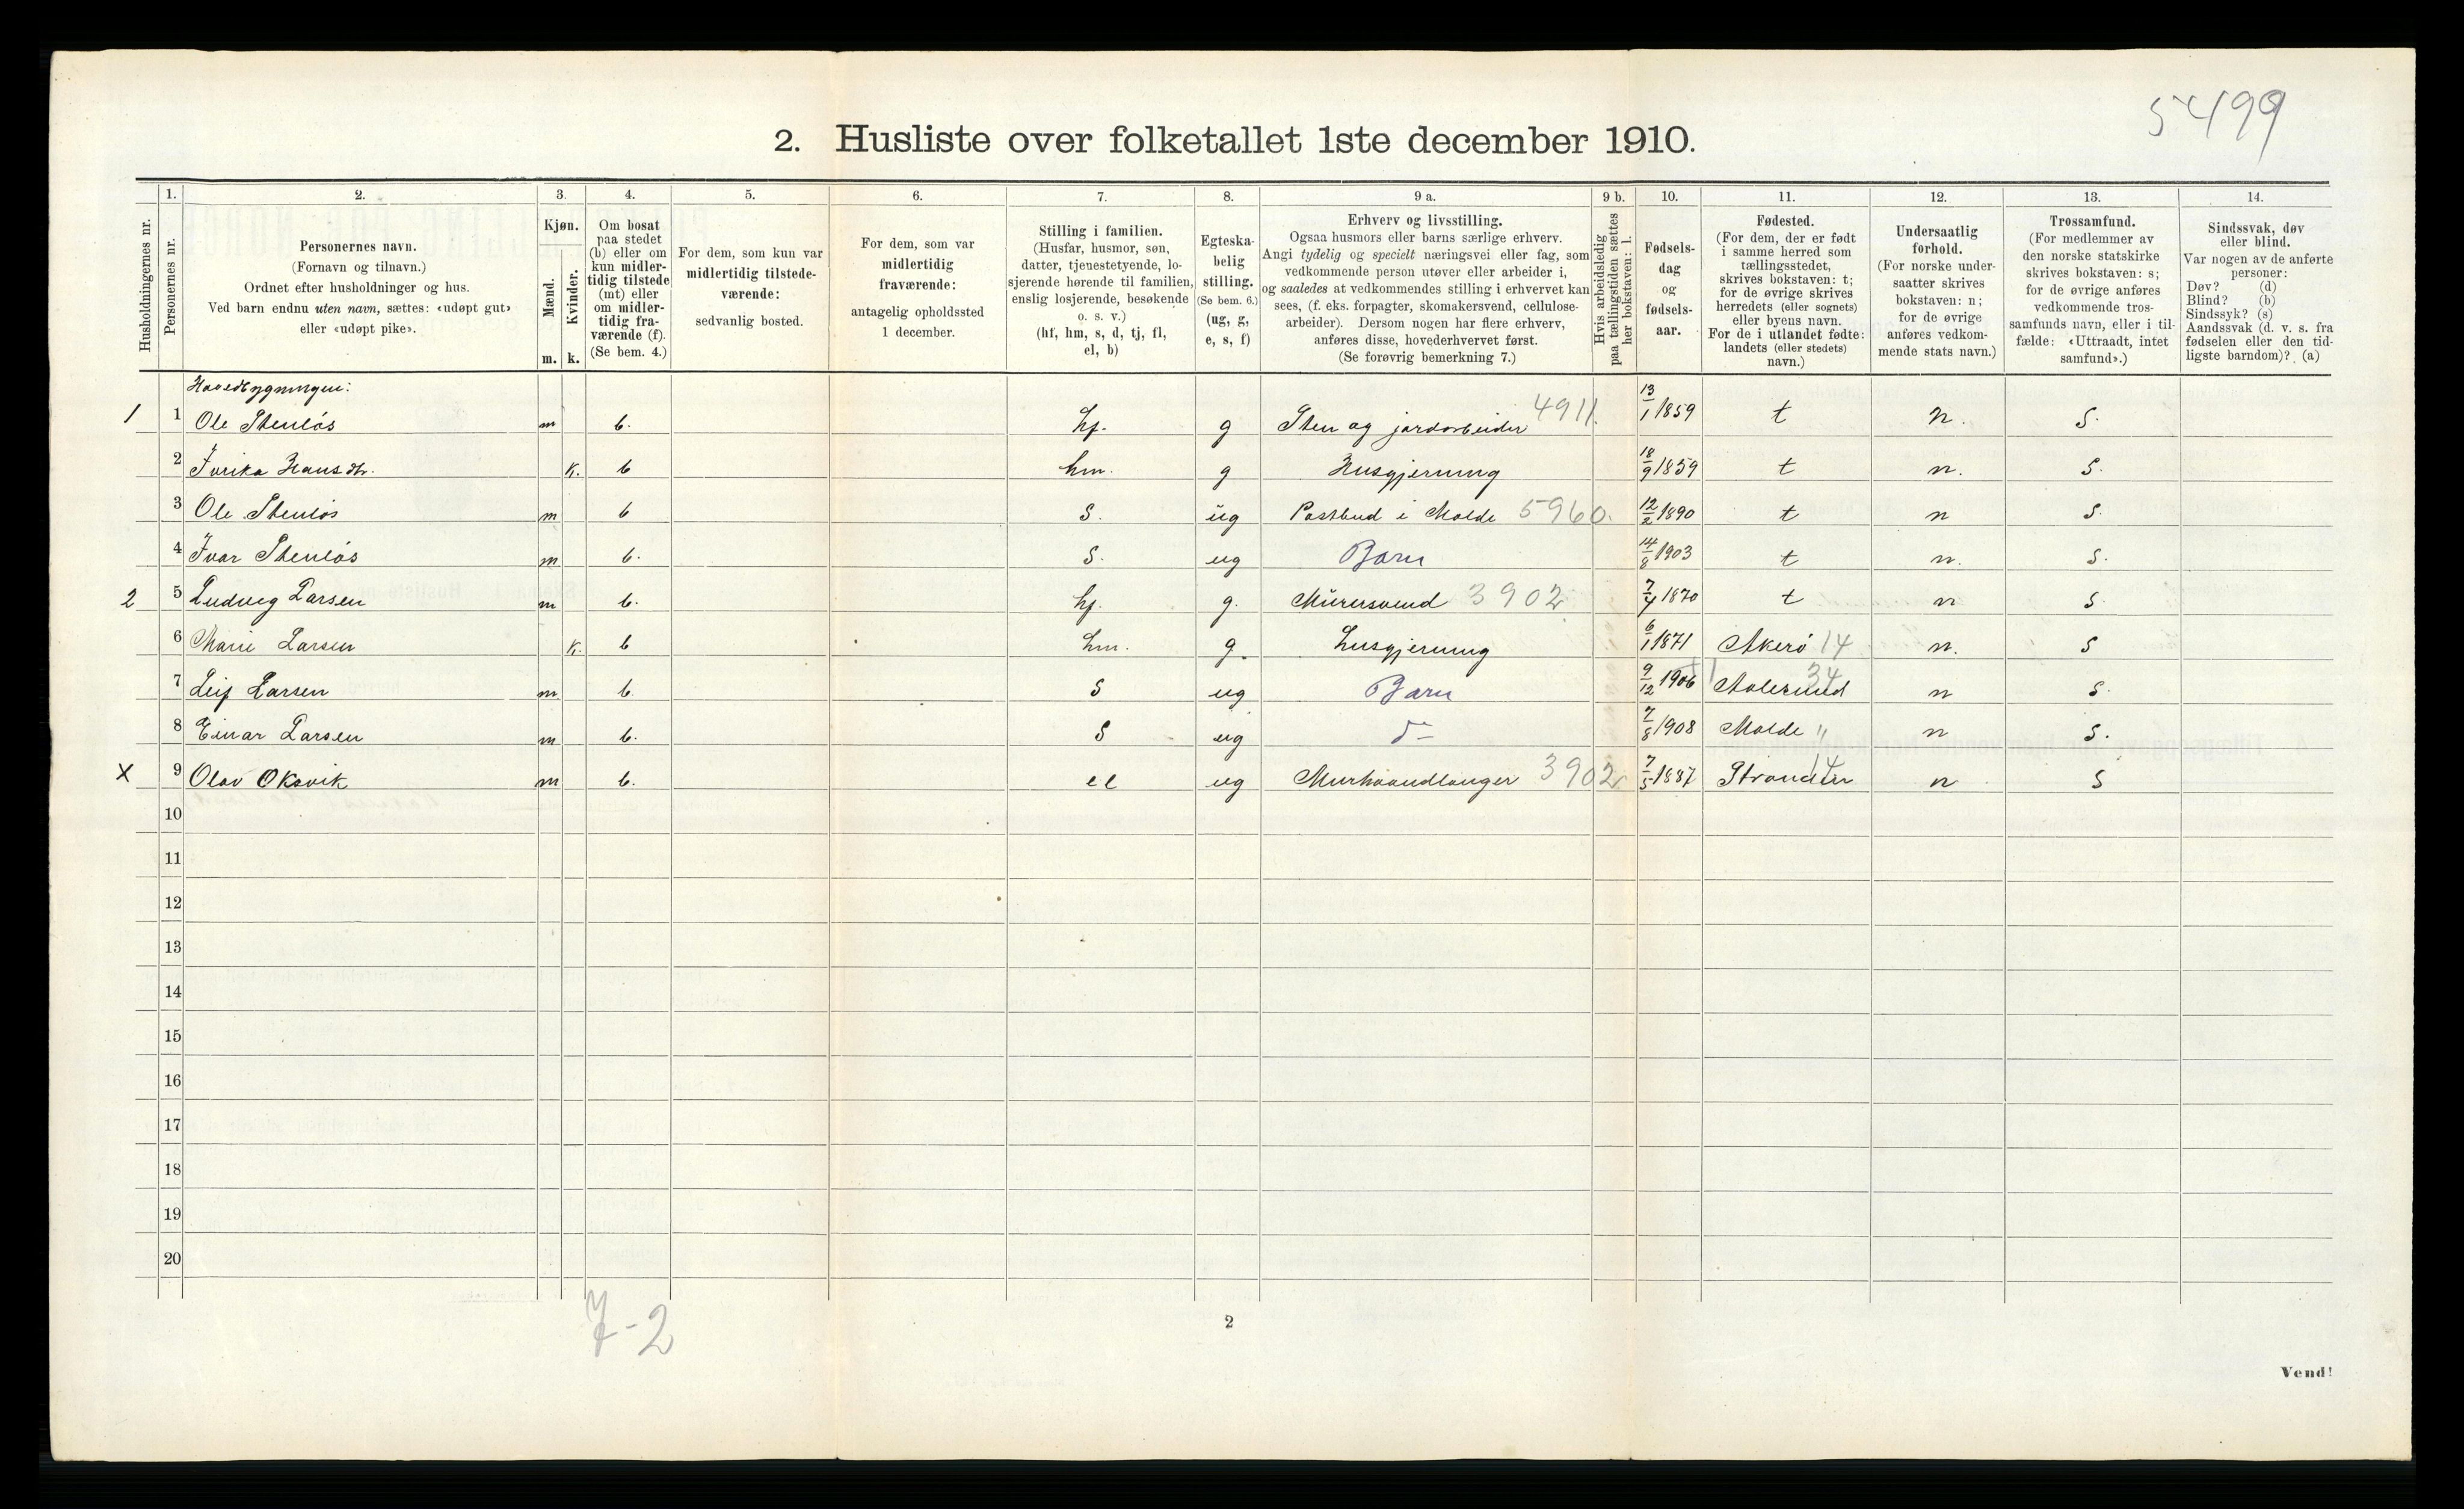 5499
2. Husliste over folketallet 1ste december 1910.
Husholdningernes nr.
1.
Personernes nr.
2.
Personernes navn.
(Fornavn og tilnavn.)
Ordnet efter husholdninger og hus.
Ved barn endnu uten navn, sættes: «udøpt gut»
eller «udøpt pike».
3.
Kjøn.
Mænd.
Kvinder.
m. k.
4.
Om bosat
paa stedet
(b) eller om
kun midler-
tidig tilstede
(mt) eller
om midler-
tidig fra-
værende (f).
(Se bem. 4.)
5.
For dem, som kun var
midlertidig tilstede-
værende:
sedvanlig bosted.
6.
For dem, som var
midlertidig
fraværende:
antagelig opholdssted
1 december.
7.
Stilling i familien.
(Husfar, husmor, søn,
datter, tjenestetyende, lo-
sjerende hørende til familien,
enslig losjerende, besøkende
o. s. v.)
(hf, hm, s, d, tj, fl,
el, b)
8.
Egteska-
belig
stilling.
(Se bem. 6.)
(ug, g,
e, s, f)
9 a.
Erhverv og livsstilling.
Ogsaa husmors eller barns særlige erhverv.
Angi tydelig og specielt næringsvei eller fag, som
vedkommende person utøver eller arbeider i,
og saaledes at vedkommendes stilling i erhvervet kan
sees, (f. eks. forpagter, skomakersvend, cellulose-
arbeider). Dersom nogen har flere erhverv,
anføres disse, hovederhvervet først.
(Se forøvrig bemerkning 7.)
9 b.
Hvis arbeidsledig
paa tællingstiden sættes
her bokstaven: l.
10.
Fødsels-
dag
og
fødsels-
aar.
11.
Fødested.
(For dem, der er født
i samme herred som
tællingsstedet,
skrives bokstaven: t;
for de øvrige skrives
herredets (eller sognets)
eller byens navn.
For de i utlandet fødte:
landets (eller stedets)
navn.)
12.
Undersaatlig
forhold.
(For norske under-
saatter skrives
bokstaven: n;
for de øvrige
anføres vedkom-
mende stats navn.)
13.
Trossamfund.
(For medlemmer av
den norske statskirke
skrives bokstaven: s;
for de øvrige anføres
vedkommende tros-
samfunds navn, eller i til-
fælde: «Uttraadt, intet
samfund».)
14.
Sindssvak, døv
eller blind.
Var nogen av de anførte
personer:
Døv? (d)
Blind? (b)
Sindssyk? (s)
Aandssvak (d. v. s. fra
fødselen eller den tid-
ligste barndom)? (a)
Hovedbygningen:
1 1 Ole Stenløs m b. hf. g Sten og jordarbeider 4911. 13/1 1859 t n. s.
2 Hansdtr. k. b hm. g Husgjerning 18/9 1859 t n. s.
3 Ole Stenløs m b s. ug Postbud i Molde 5960. 12/2 1890 t n s.
4 Ivar Stenløs m b. s. ug Barn 14/8 1903 t n. s.
2 5 Ludvig Larsen m b. hf. g. Murersvend 3902 7/4 1870 t n s.
6 Marie Larsen k. b hm. g. husgjerning 6/1 1871 Akerø 14 n. s
7 Leif Larsen m b. s ug Barn 9/12 1906 Aalesund 34 n s.
8 Einar Larsen m b. s ug d- 7/8 1908 Molde " n s.
X 9 Olav Oksvik m b. el ug Murhaandlanger 3902 7/5 1887 14 n s
10
11
12
13
14
15
16
17
18
19
20
7-2
2
Vend!